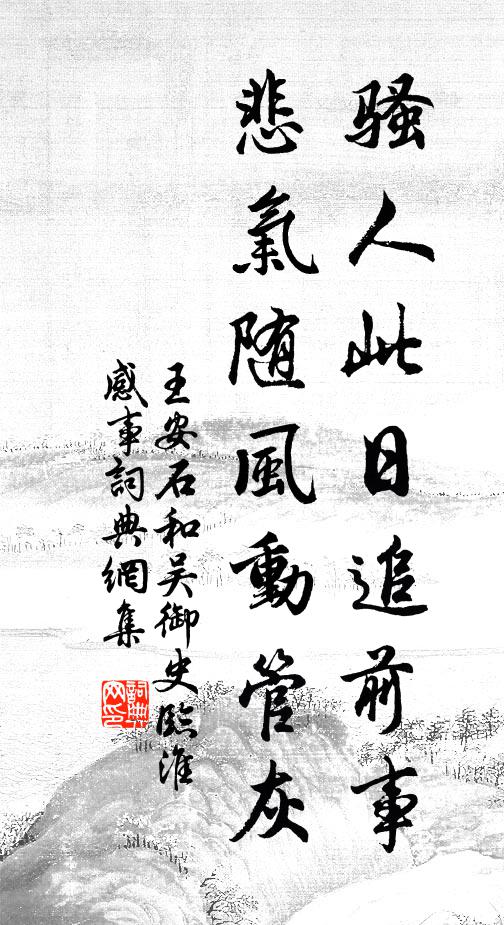 騷人此日追前事
悲氣随風動管灰
王安石和吴御史臨淮
感事詞典網集
詞典
网印